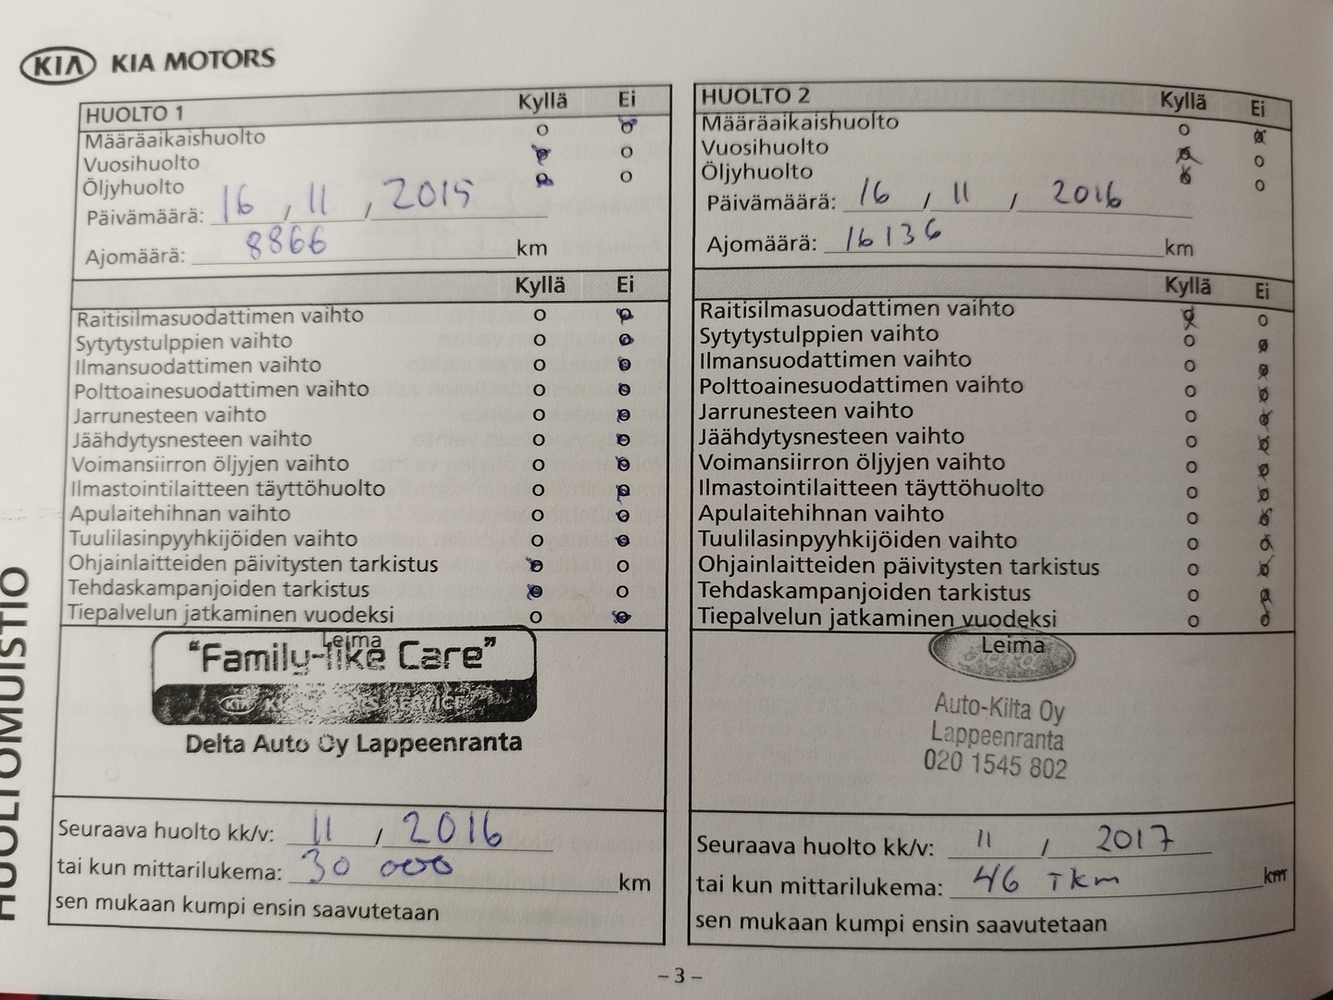 KIA KIA MOTORS
HUOLTO 1 Kyllä Ei
Määräaikaishuolto o o
Vuosihuolto o o
Öljyhuolto o o
Päivämäärä: 16 / 11 / 2015
Ajomäärä: 8866 km
Kyllä Ei
Raitisilmasuodattimen vaihto o o
Sytytystulppien vaihto o o
Ilmansuodattimen vaihto o o
Polttoainesuodattimen vaihto o o
Jarrunesteen vaihto o o
Jäähdytysnesteen vaihto o o
Voimansiirron öljyjen vaihto o o
Ilmastointilaitteen täyttöhuolto o o
Apulaitehihnan vaihto o o
Tuulilasinpyyhkijöiden vaihto o o
Ohjainlaitteiden päivitysten tarkistus o o
Tehdaskampanjoiden tarkistus o o
Tiepalvelun jatkaminen vuodeksi o o
Leima
"Family-like Care"
KIA MOTORS SERVICE
Delta Auto Oy Lappeenranta
Seuraava huolto kk/v: 11 / 2016
tai kun mittarilukema: 30 000 km
sen mukaan kumpi ensin saavutetaan
HUOLTO 2 Kyllä Ei
Määräaikaishuolto o o
Vuosihuolto o o
Öljyhuolto o o
Päivämäärä: 16 / 11 / 2016
Ajomäärä: 16136 km
Kyllä Ei
Raitisilmasuodattimen vaihto o o
Sytytystulppien vaihto o o
Ilmansuodattimen vaihto o o
Polttoainesuodattimen vaihto o o
Jarrunesteen vaihto o o
Jäähdytysnesteen vaihto o o
Voimansiirron öljyjen vaihto o o
Ilmastointilaitteen täyttöhuolto o o
Apulaitehihnan vaihto o o
Tuulilasinpyyhkijöiden vaihto o o
Ohjainlaitteiden päivitysten tarkistus o o
Tehdaskampanjoiden tarkistus o o
Tiepalvelun jatkaminen vuodeksi o o
Leima
Auto-Kilta Oy
Lappeenranta
020 1545 802
Seuraava huolto kk/v: 11 / 2017
tai kun mittarilukema: 46 Tkm km
sen mukaan kumpi ensin saavutetaan
HUOLTOMUISTIO
– 3 –